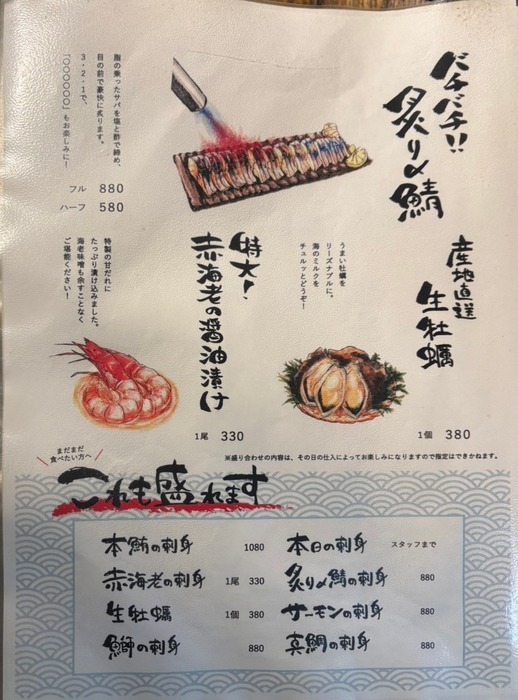 バチバチ!!
炙り〆鯖
脂の乗ったサバを塩と酢で締め、
目の前で豪快に炙ります。
3・2・1で、
「○○○○○○」もお楽しみに！
フル 880
ハーフ 580
産地直送
生牡蠣
うまい牡蠣を
リーズナブルに。
海のミルクを
チュルッとどうぞ！
1個 380
特大！
赤海老の醤油漬け
特製の甘だれに
たっぷり漬け込みました。
海老味噌も余すことなく
ご堪能ください！
1尾 330
※盛り合わせの内容は、その日の仕入によってお楽しみになりますので指定はできかねます。
まだまだ
食べたい方へ
これも盛れます
本鮪の刺身 1080
赤海老の刺身 1尾 330
生牡蠣 1個 380
鰤の刺身 880
本日の刺身 スタッフまで
炙り〆鯖の刺身 880
サーモンの刺身 880
真鯛の刺身 880